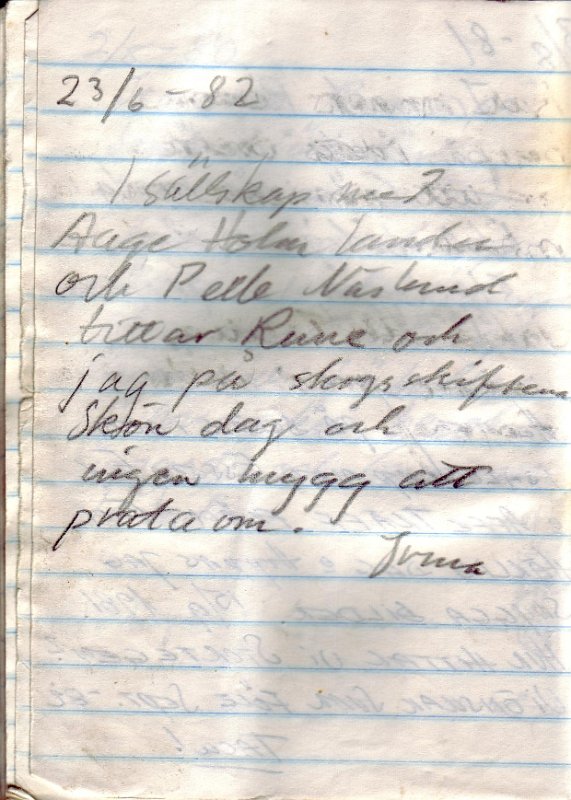 23/6-82
I sällskap med
Aage Holm
och Pelle Näslund
tittar Rune och
jag på skogsskiften
Skön dag och
ingen mygg att
prata om.